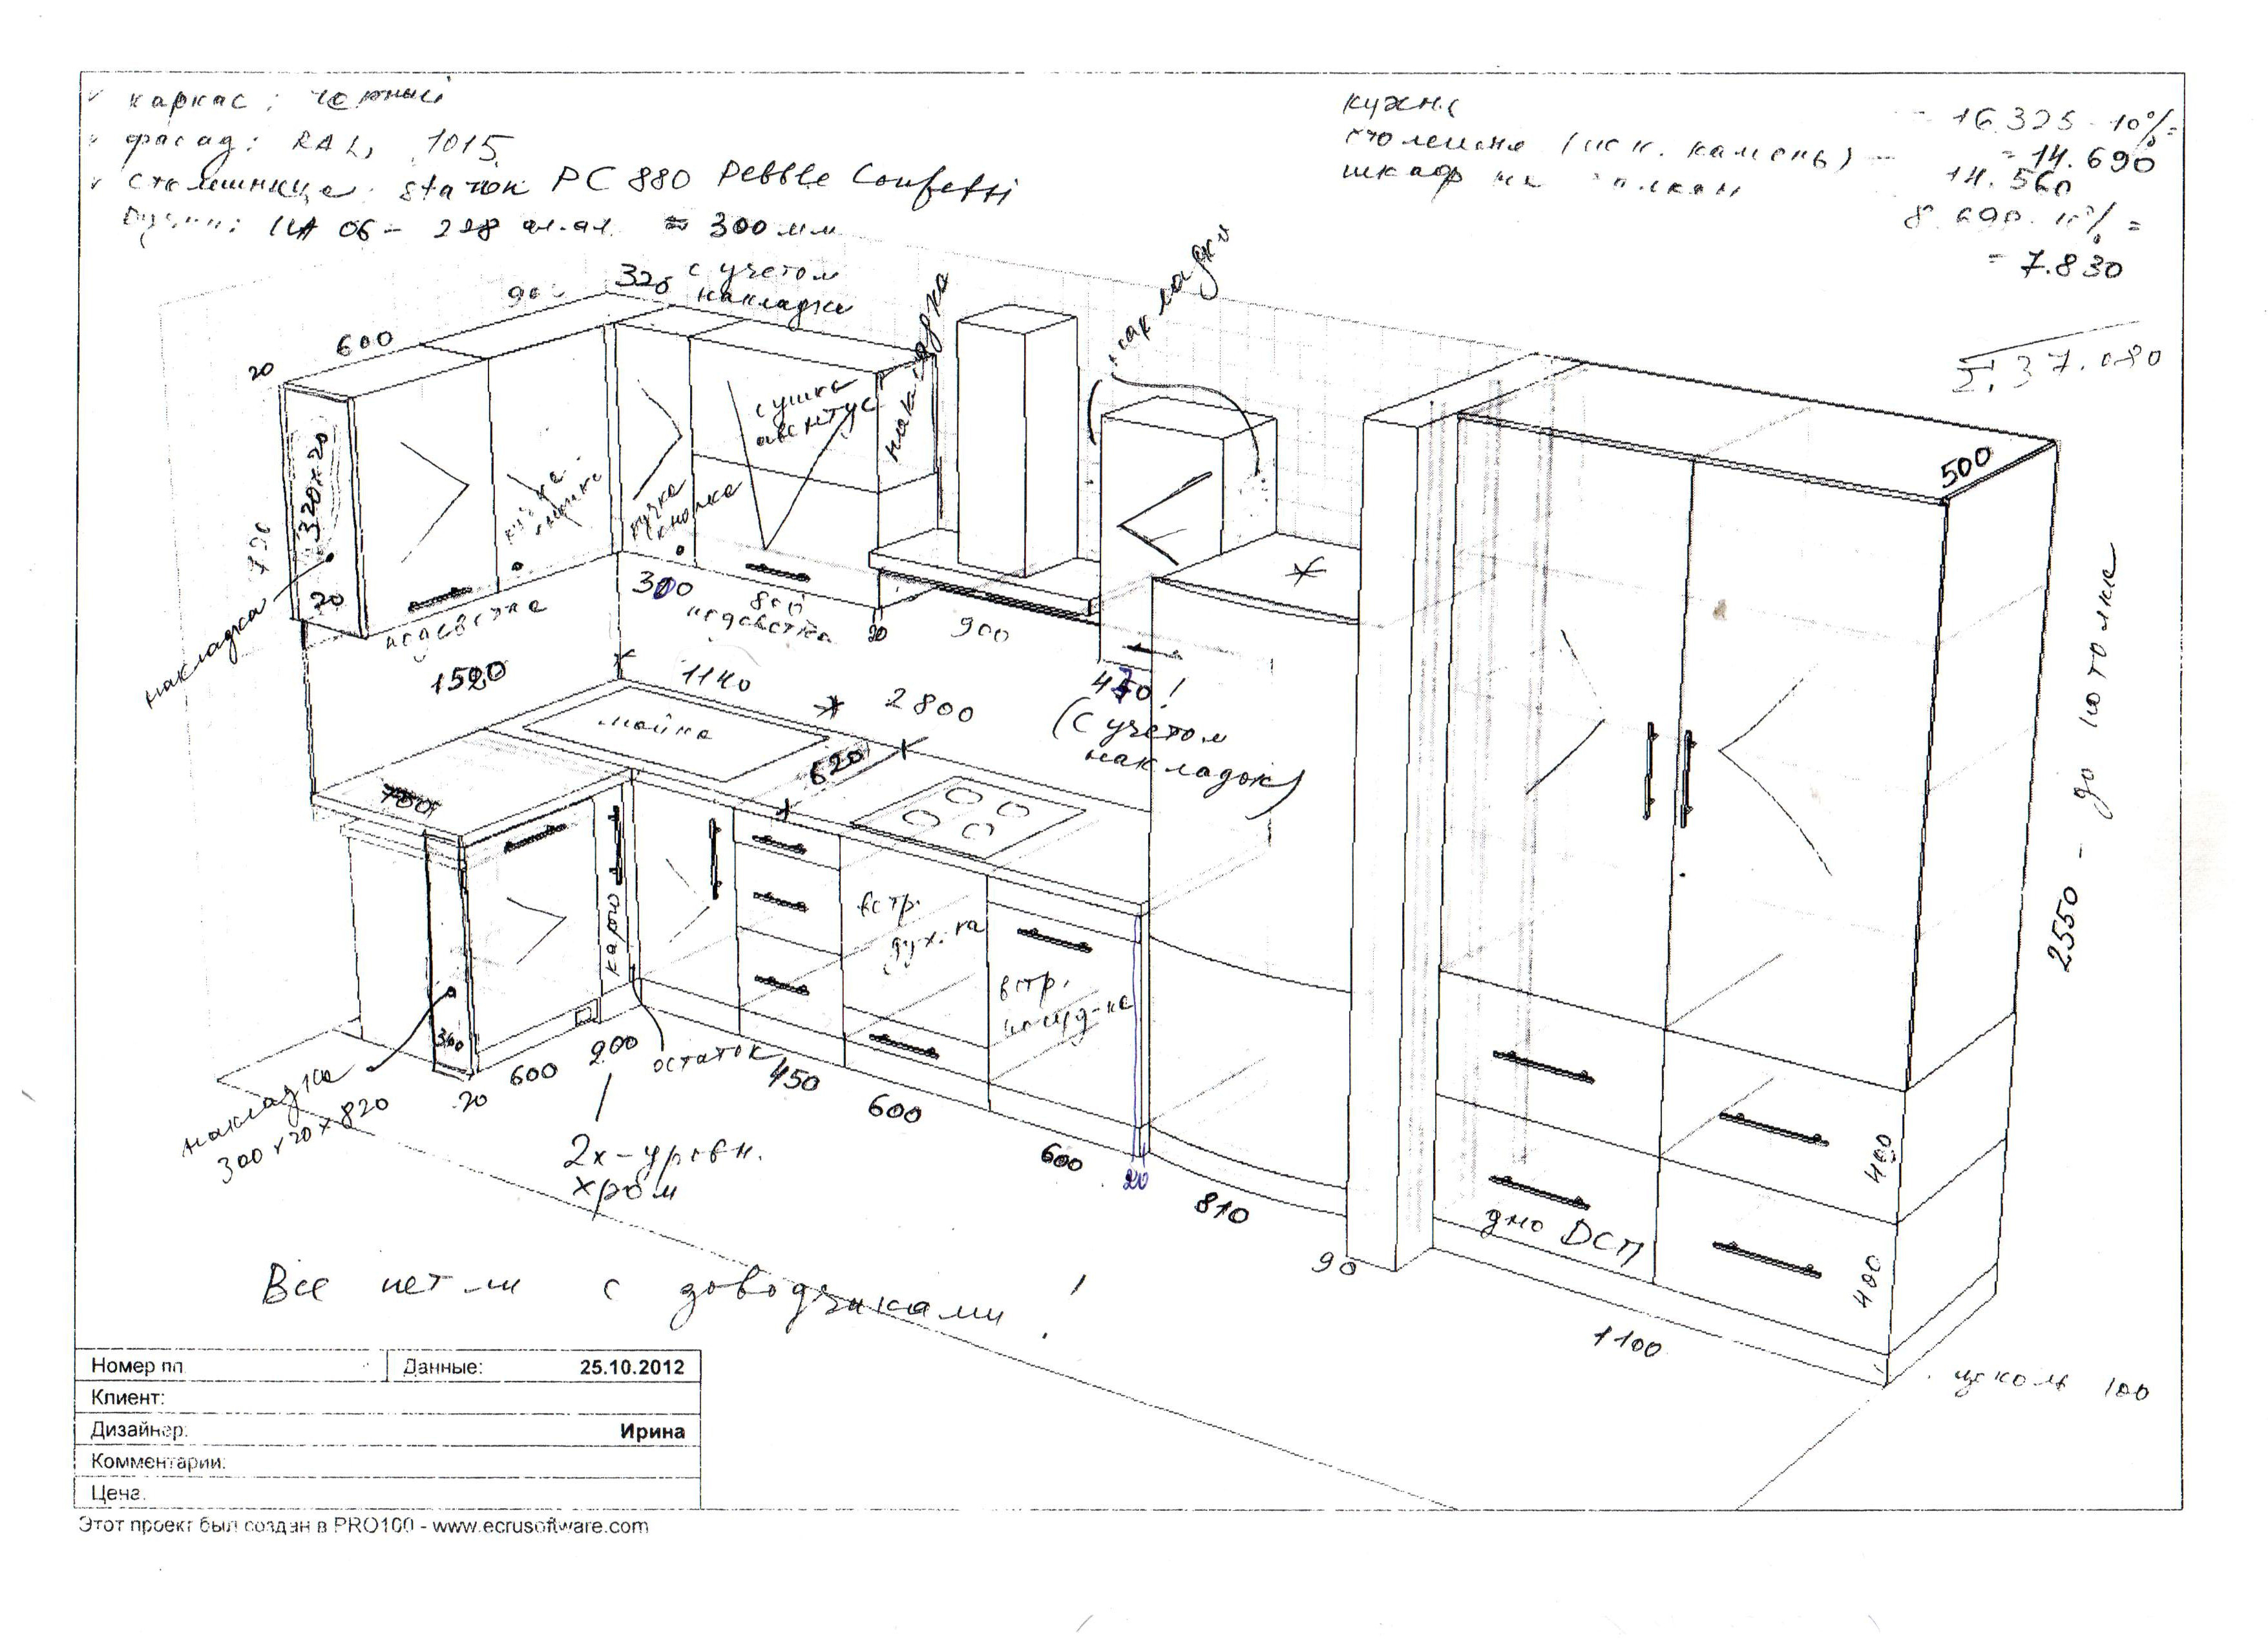 каркас: черный
фасад: RAL 1015
столешница: staron PC 880 Pebble Confetti
06 - 228 ≈ 300 мм
кухня - 16 325 - 10% =
= 14.690
столешня (иск. камень) - 14.560
шкаф на
8 690 - 10% =
= 7.830
Σ 37.080
20
600
900
320 с учетом
накладки
накладка
накладки
320x20
720
20
накладка
сушка
ручка
кнопка
ручка
кнопка
подсветка
300
800
подсветка
20
900
450!
(с учетом
накладок)
1520
1140
2800
мойка
620
700
карго
встр.
дух-ка
встр.
посуд-ка
500
2550 - до потолка
300
накладка
300 x 20 x 820
20
600
200
остаток
450
600
600
20
810
90
2х-уровн.
хром
дно ДСП
400
400
1100
цоколь 100
Все петли с доводчиками!
Номер пл.
Данные: 25.10.2012
Клиент:
Дизайнер: Ирина
Комментарии:
Цена:
Этот проект был создан в PRO100 - www.ecrusoftware.com